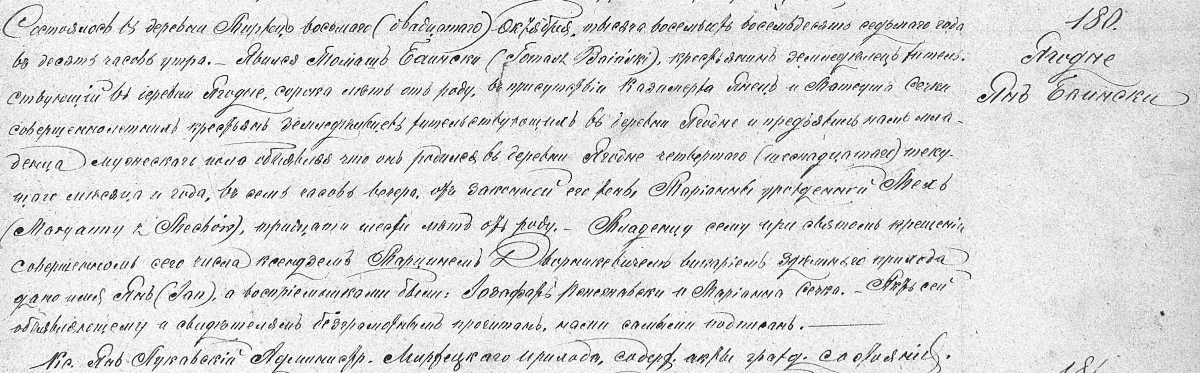 Состоялось въ деревни Мирець восьмаго (двадцатаго) Октября, тысяча восемьсотъ восемьдесятъ седьмаго года
въ десять часовъ утра. – Явился Томашъ Баински (Tomasz Baiński), крестьянинъ земледѣлецъ житель-
ствующій въ деревни Ягодне, сорока лѣтъ отъ роду, въ присутствіи Казимерта и Матеуша Сечки
совершеннолѣтнихъ крестьянъ земледѣльцевъ жительствующихъ въ деревни Ягодне и предъявилъ намъ мла-
денца мужескаго пола объявляя что онъ родился въ деревни Ягодне четвертаго (шестнадцатаго) теку-
щаго мѣсяца и года, въ семь часовъ вечера, отъ законной его жены Маріанны урожденной Мехъ
(Maryanny z Mechów), тридцати шести лѣтъ отъ роду. – Младенцу сему при святомъ крещеніи
совершенномъ сего числа ксендзомъ Марциномъ Дворникевичемъ викаріемъ здѣшняго прихода
дано имя Янъ (Jan), а воспріемниками были: Іозафатъ и Маріанна Сечка. – Актъ сей
объявляющему и свидѣтелямъ безграмотнымъ прочитанъ, нами самыми подписанъ. –
Кс. Янъ Луковскій Администр. Мирецкаго прихода, содерж. акты гражд. состоянія.
180.
Ягодне
Янъ Баински
181.